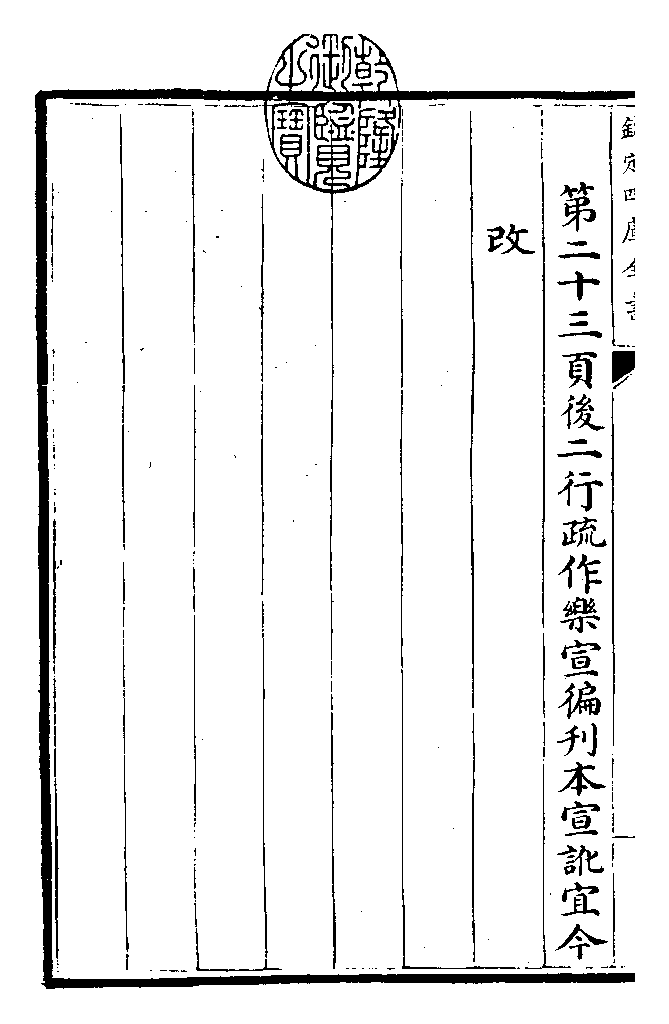 欽定四庫全書
第二十三頁後二行疏作樂宣徧刊本宣訛宜今
改
乾隆御覽之寶